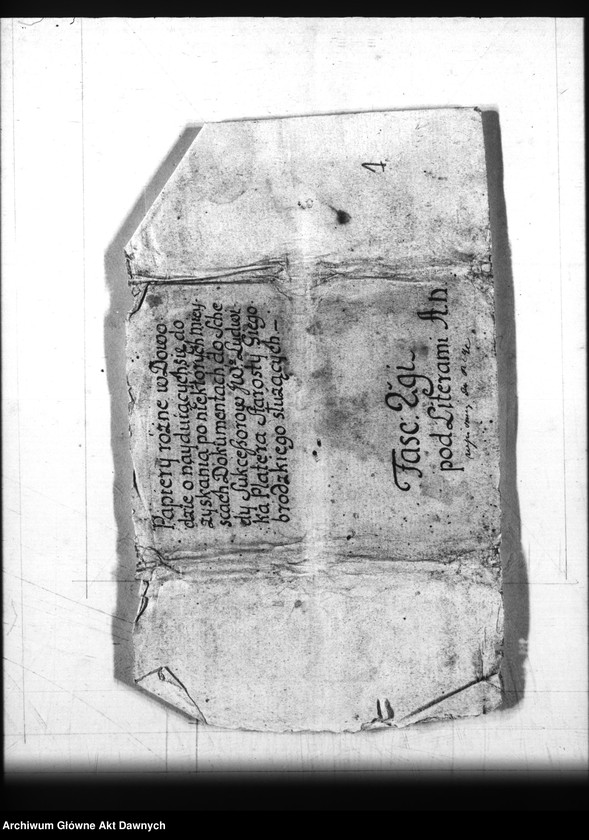 Papiery różne w Dowo
dzie o nayduiących się do
zyskania po niektorych miey
scach Dokumentach do Sche
dy Sukcessorow JWo Ludwi
ka Platera Starosty Giego
brodzkiego służących –
Fasc: 2gi
pod Literami A. n
1.
Archiwum Główne Akt Dawnych